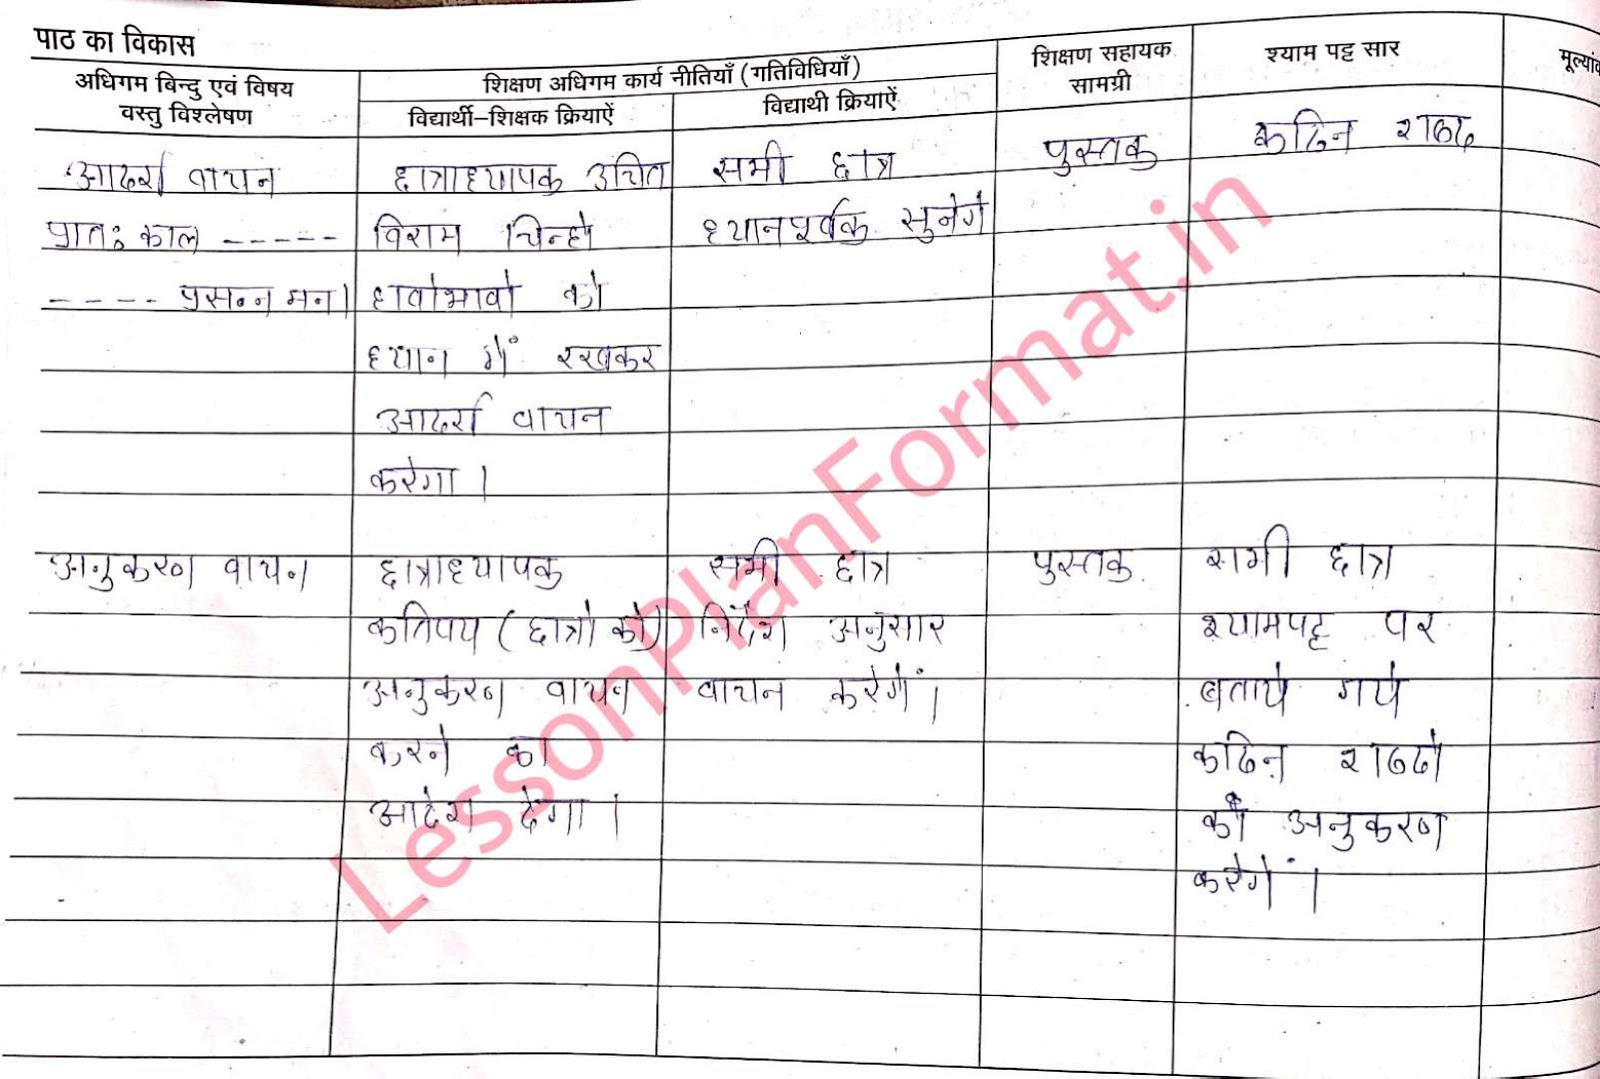 पाठ का विकास
अधिगम बिन्दु एवं विषय
वस्तु विश्लेषण
शिक्षण अधिगम कार्य नीतियाँ (गतिविधियाँ)
विद्यार्थी-शिक्षक क्रियाऐं
विद्यार्थी क्रियाऐं
शिक्षण सहायक
सामग्री
श्याम पट्ट सार
मूल्यां
आदर्श वाचन
प्रात: काल -----
---- प्रसन्न मन।
छात्राध्यापक उचित
विराम चिन्हो
हावोभावो को
ध्यान में रखकर
आदर्श वाचन
करेगा।
सभी छात्र
ध्यानपूर्वक सुनेगे
पुस्तक
कठिन शब्द
अनुकरण वाचन
छात्राध्यापक
कतिपय (छात्रो को)
अनुकरण वाचन
करने का
आदेश देगा।
सभी छात्र
निर्देश अनुसार
वाचन करेगें।
पुस्तक
सभी छात्र
श्यामपट्ट पर
बताये गये
कठिन शब्दो
को अनुकरण
करेगें।
LessonPlanFormat.in